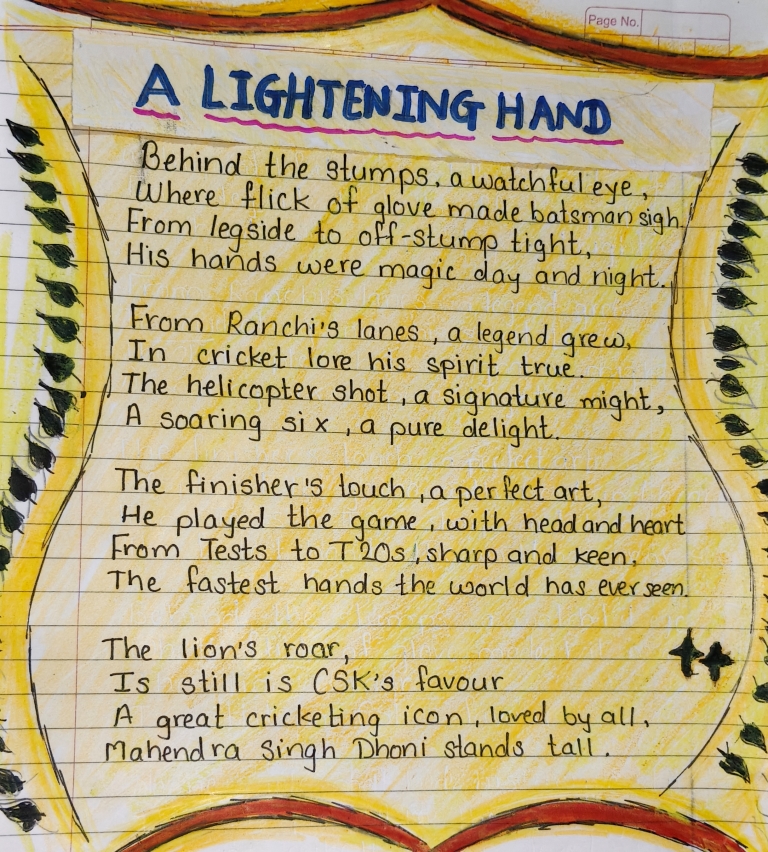 Page No.
A LIGHTENING HAND
Behind the stumps, a watchful eye,
Where flick of glove made batsman sigh.
From legside to off-stump tight,
His hands were magic day and night.
From Ranchi's lanes, a legend grew,
In cricket lore his spirit true.
The helicopter shot, a signature might,
A soaring six, a pure delight.
The finisher's touch, a perfect art,
He played the game, with head and heart
From Tests to T20s, sharp and keen,
The fastest hands the world has ever seen.
The lion's roar,
Is still is CSK's favour
A great cricketing icon, loved by all,
Mahendra Singh Dhoni stands tall.